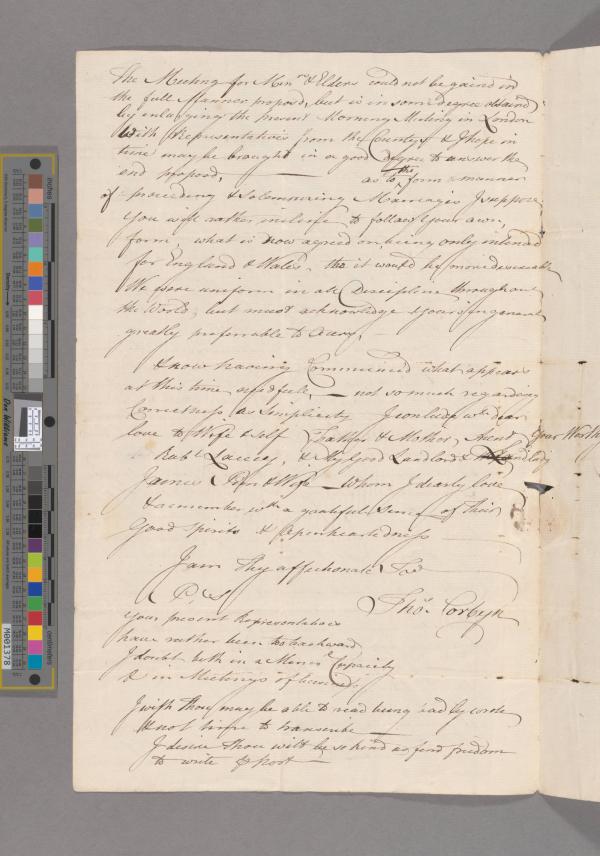 The Meeting for Minrs & Elders could not be gaind in
the full Manner propos'd, but is in some degree obtaind
by enlarging the present Morning Meeting in London
with Representatives from the Countys & I hope in
time may be brought in a good degree to answer the
end propos'd, as to the form & manner
of proceeding & Solemnizing Marriages I suppose
you will rather incline to follow your own
form, what is now agreed on being only intended
for England & Wales, tho it would be more desireable
We were uniform in all Discipline throughout
the World, but must acknowledge yours in general
greatly preferrable to Ours,
& now having Communicd what appears
at this time needfull, not so much regarding
Correctness as Simplicity I conclude wth dear
love to Wife & self Father & Mother, Aunt, your Worthy
Rabl Laceey, & My Good Landlord & landlady
James & Wife Whom I dearly love
& remember wth a grateful Sense of their
Good Spirits & Openheartedness
I am Thy affectionate Frd
Thos Corbyn
P S
your present Representatives
have rather been too backward
I doubt both in a Minrs Capacity
& in Meetings of business
I wish Thou may be able to read being bad by
& not time to transcribe
I desire Thou wilt be so kind as freedom
to write post
inches
centimeters
Don Williams
M001378